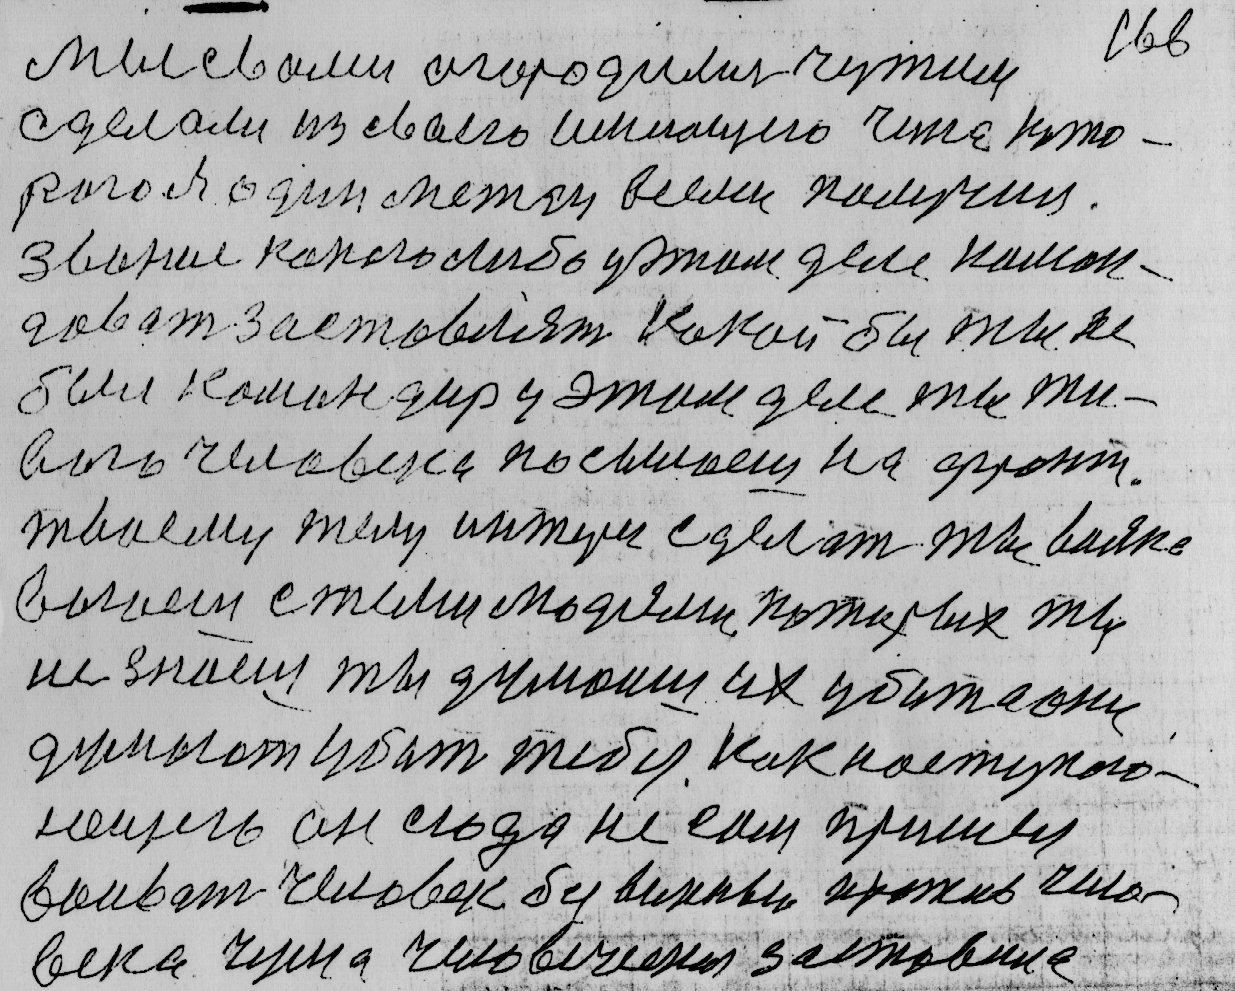 166
Мы с вами огородились чужим
сделали из своего чина кото-
рого я один между всеми получил.
звание какого либо у этом деле коман-
доват заставляят какой бы ты не
был командир у этом деле ты жи-
вого человека посылаеш на фронт.
твоему телу сделат ты вояка
воюеш с теми людями которых ты
не знаеш ты думаеш их убит а они
думают убит тебя. Как наступаю-
он сюда не сам пришел
воиват человек бу против чело-
века чужа человеческая заставила